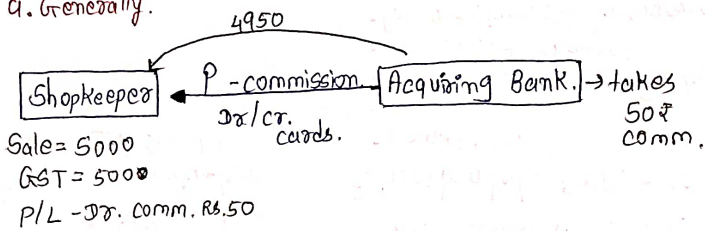 a. Generally.
4950
Shopkeeper
P - commission
Dr/cr.
cards.
Acquiring Bank. → takes
50₹
comm.
Sale = 5000
GST = 5000
P/L - Dr. comm. Rs. 50